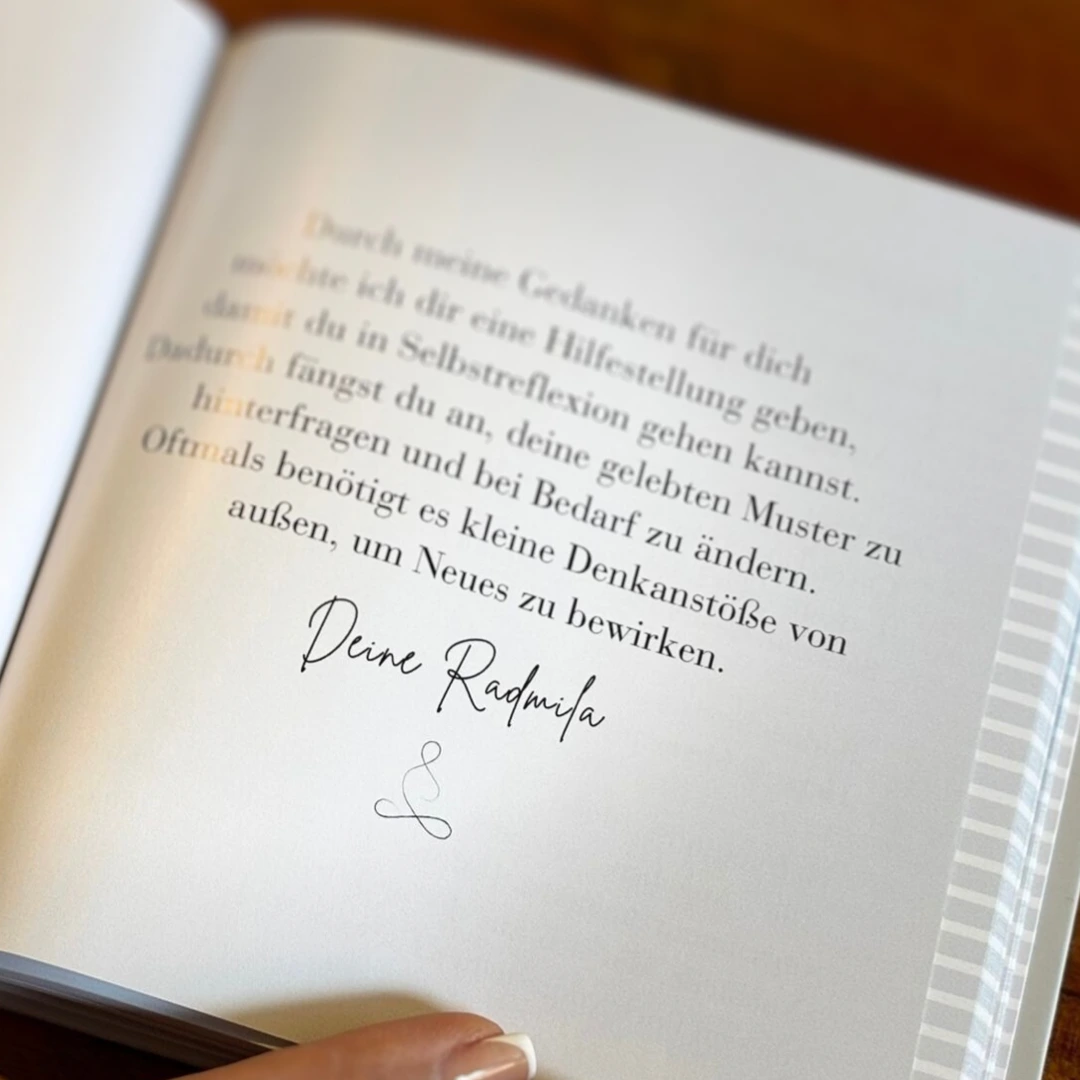 Durch meine Gedanken für dich
möchte ich dir eine Hilfestellung geben,
damit du in Selbstreflexion gehen kannst.
Dadurch fängst du an, deine gelebten Muster zu
hinterfragen und bei Bedarf zu ändern.
Oftmals benötigt es kleine Denkanstöße von
außen, um Neues zu bewirken.
Deine Radmila